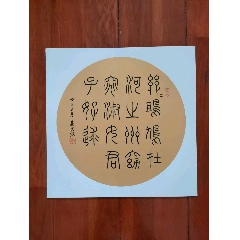 關〻雎鳩在
河之洲窈
窕淑女君
子好逑